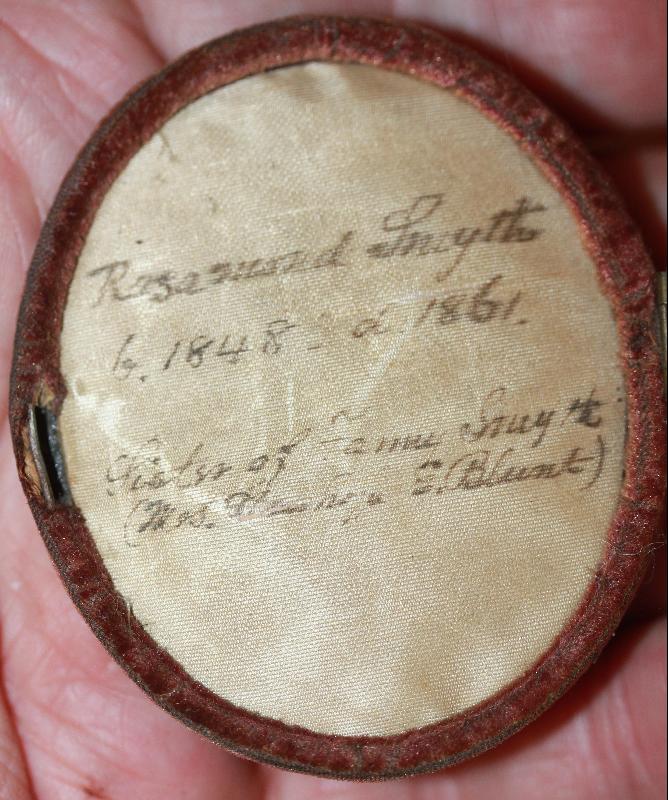 Rosamond Smyth
b. 1848 - d. 1861.
Sister of Fannie Smyth
(Mrs. E. Blunt)